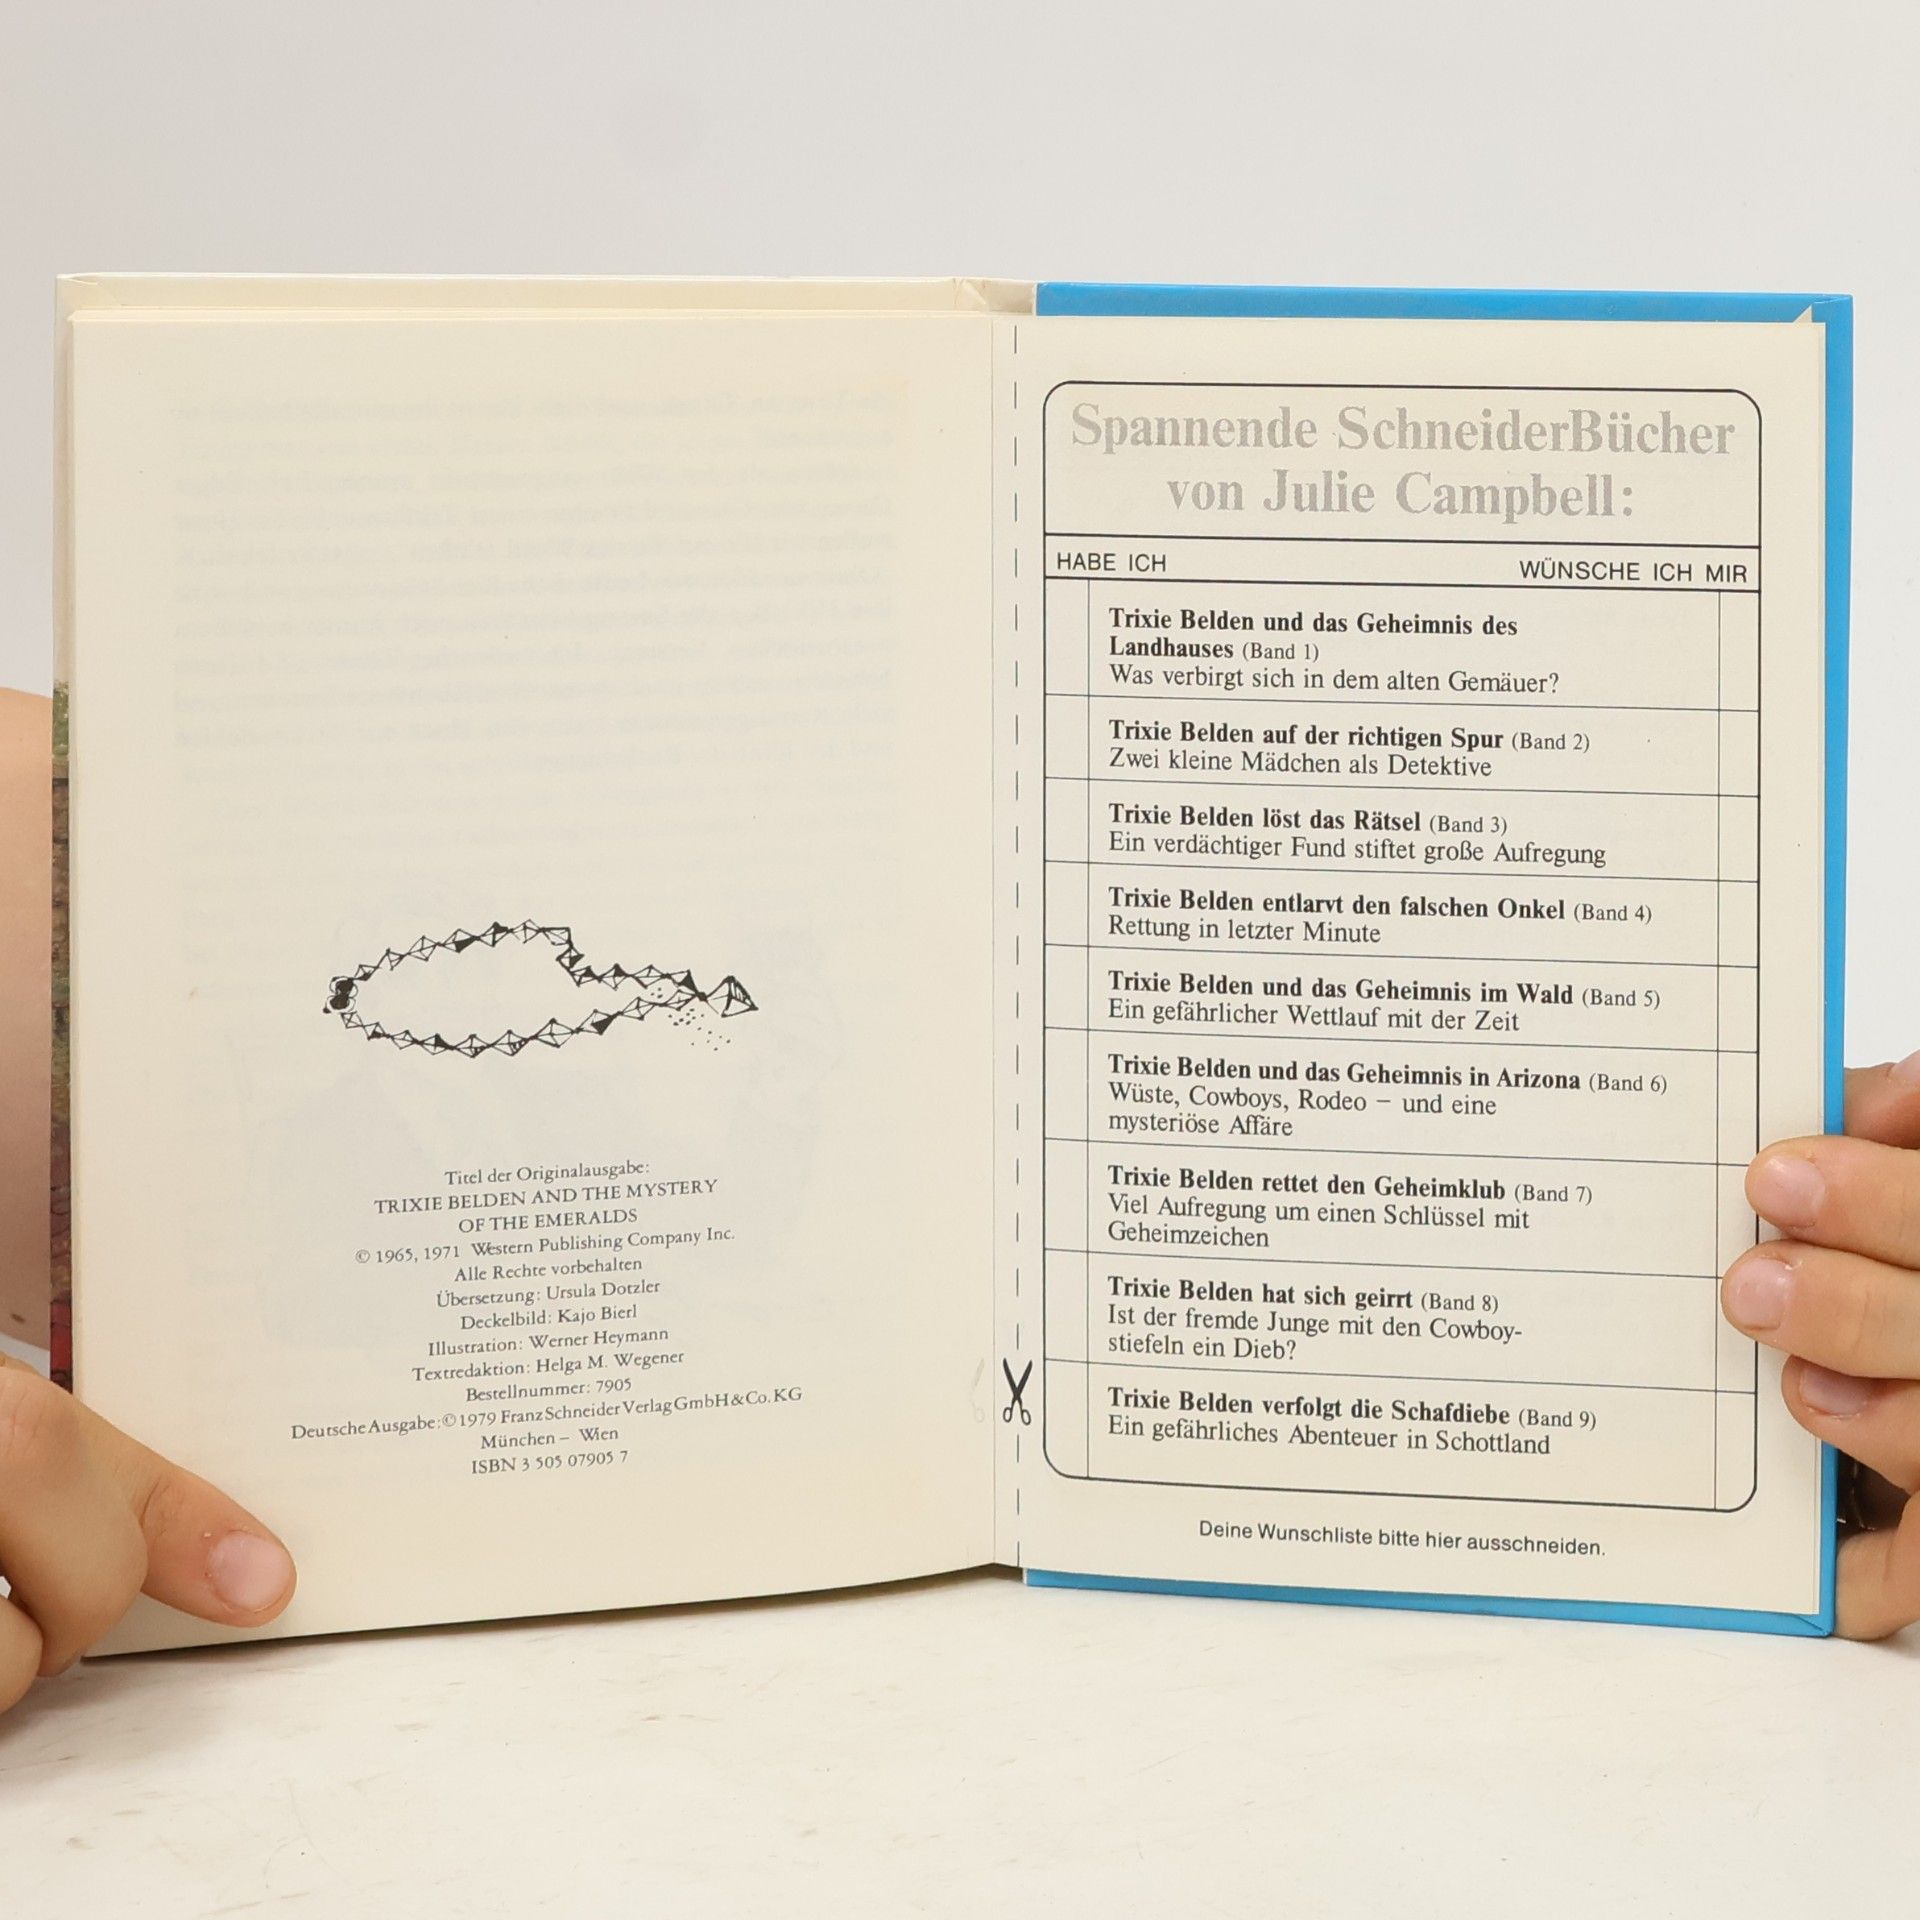 Titel der Originalausgabe:
TRIXIE BELDEN AND THE MYSTERY
OF THE EMERALDS
© 1965, 1971 Western Publishing Company Inc.
Alle Rechte vorbehalten
Übersetzung: Ursula Dotzler
Deckelbild: Kajo Bierl
Illustration: Werner Heymann
Textredaktion: Helga M. Wegener
Bestellnummer: 7905
Deutsche Ausgabe: © 1979 Franz Schneider Verlag GmbH & Co. KG
München – Wien
ISBN 3 505 07905 7
Spannende SchneiderBücher
von Julie Campbell:
HABE ICH WÜNSCHE ICH MIR
Trixie Belden und das Geheimnis des
Landhauses (Band 1)
Was verbirgt sich in dem alten Gemäuer?
Trixie Belden auf der richtigen Spur (Band 2)
Zwei kleine Mädchen als Detektive
Trixie Belden löst das Rätsel (Band 3)
Ein verdächtiger Fund stiftet große Aufregung
Trixie Belden entlarvt den falschen Onkel (Band 4)
Rettung in letzter Minute
Trixie Belden und das Geheimnis im Wald (Band 5)
Ein gefährlicher Wettlauf mit der Zeit
Trixie Belden und das Geheimnis in Arizona (Band 6)
Wüste, Cowboys, Rodeo – und eine
mysteriöse Affäre
Trixie Belden rettet den Geheimklub (Band 7)
Viel Aufregung um einen Schlüssel mit
Geheimzeichen
Trixie Belden hat sich geirrt (Band 8)
Ist der fremde Junge mit den Cowboy-
stiefeln ein Dieb?
Trixie Belden verfolgt die Schafdiebe (Band 9)
Ein gefährliches Abenteuer in Schottland
Deine Wunschliste bitte hier ausschneiden.